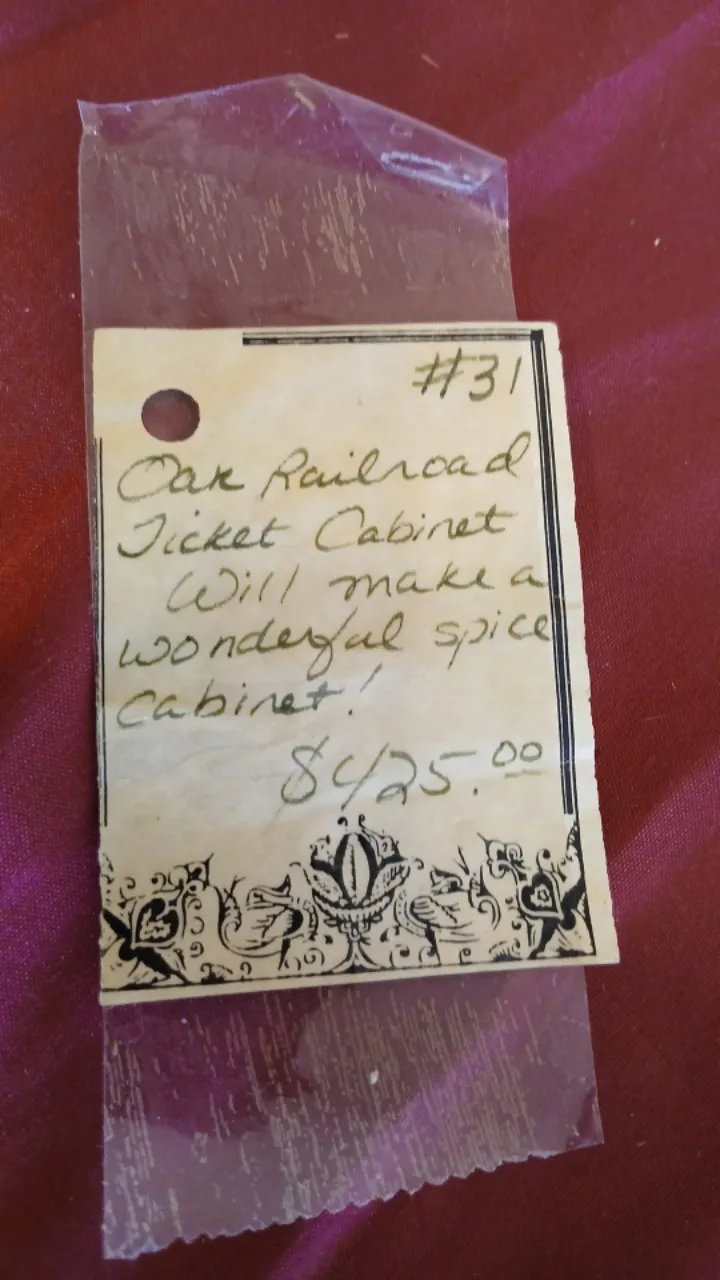 #31
Oak Railroad
Ticket Cabinet
Will make a
wonderful spice
cabinet!
$425.00